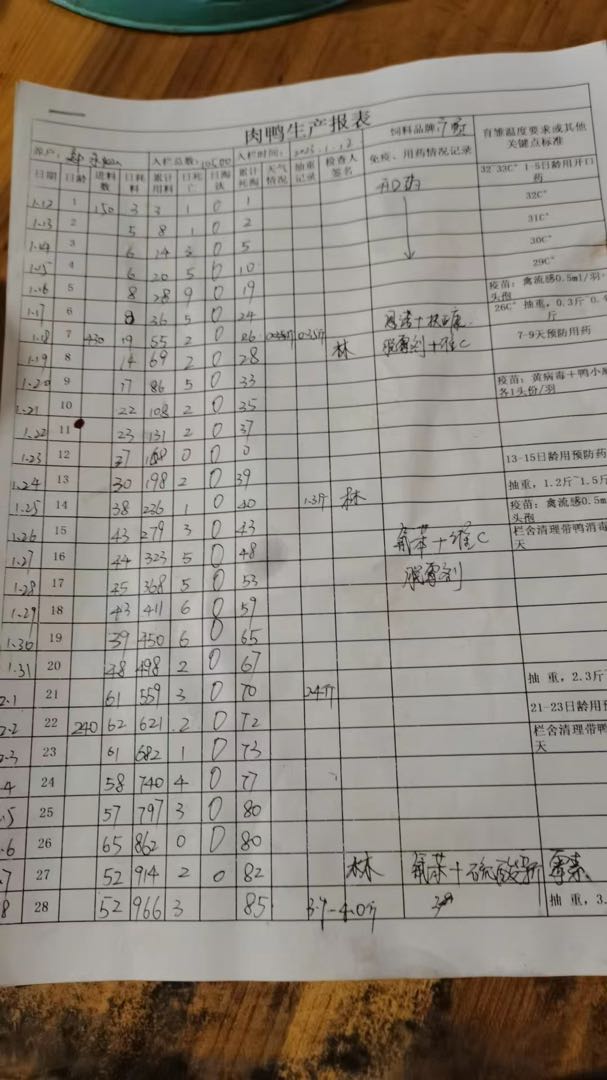 肉鸭生产报表
养户: 入栏总数:10500 入栏时间:2025.1.12 饲料品牌: 育雏温度要求或其他关键点标准
日期 日龄 进料数 日耗料 累计用料 日死亡 日淘汰 累计死淘 天气情况 抽重记录 检查人签名 免疫、用药情况记录 32-33C° 1-5日龄用开口药
1.12 1 150 3 3 1 0 1 开口药 32C°
1.13 2 5 8 1 0 2 31C°
1.14 3 6 14 3 0 5 30C°
1.15 4 6 20 5 0 10 29C°
1.16 5 8 28 9 0 19 疫苗:禽流感0.5ml/羽 头孢
1.17 6 8 36 5 0 24 26C° 抽重,0.3斤 斤
1.18 7 430 19 55 2 0 26 0.35斤 0.35斤 7-9天预防用药
1.19 8 14 69 2 0 28 林 脱霉剂+维C
1.20 9 17 86 5 0 33 疫苗:黄病毒+鸭小 各1头份/羽
1.21 10 22 108 2 0 35
1.22 11 23 131 2 0 37
1.23 12 37 168 0 0 0
1.24 13 30 198 2 0 39 13-15日龄用预防药
1.25 14 38 236 1 0 40 1.3斤 林 抽重,1.2斤~1.5斤
1.26 15 43 279 3 0 43 氟苯+维C 疫苗:禽流感0.5m 头孢
1.27 16 44 323 5 0 48 栏舍清理带鸭消毒 天
1.28 17 45 368 5 0 53 脱霉剂
1.29 18 43 411 6 0 59
1.30 19 39 450 6 0 65
1.31 20 48 498 2 0 67
2.1 21 61 559 3 0 70 2.4斤 抽重,2.3斤
2.2 22 240 62 621 2 0 72 21-23日龄用预
2.3 23 61 682 1 0 73 栏舍清理带鸭 天
.4 24 58 740 4 0 77
.5 25 57 797 3 0 80
.6 26 65 862 0 0 80
.7 27 52 914 2 0 82 林 氟苯+硫酸新霉素
8 28 52 966 3 85 3.9-4.0斤 抽重,3.